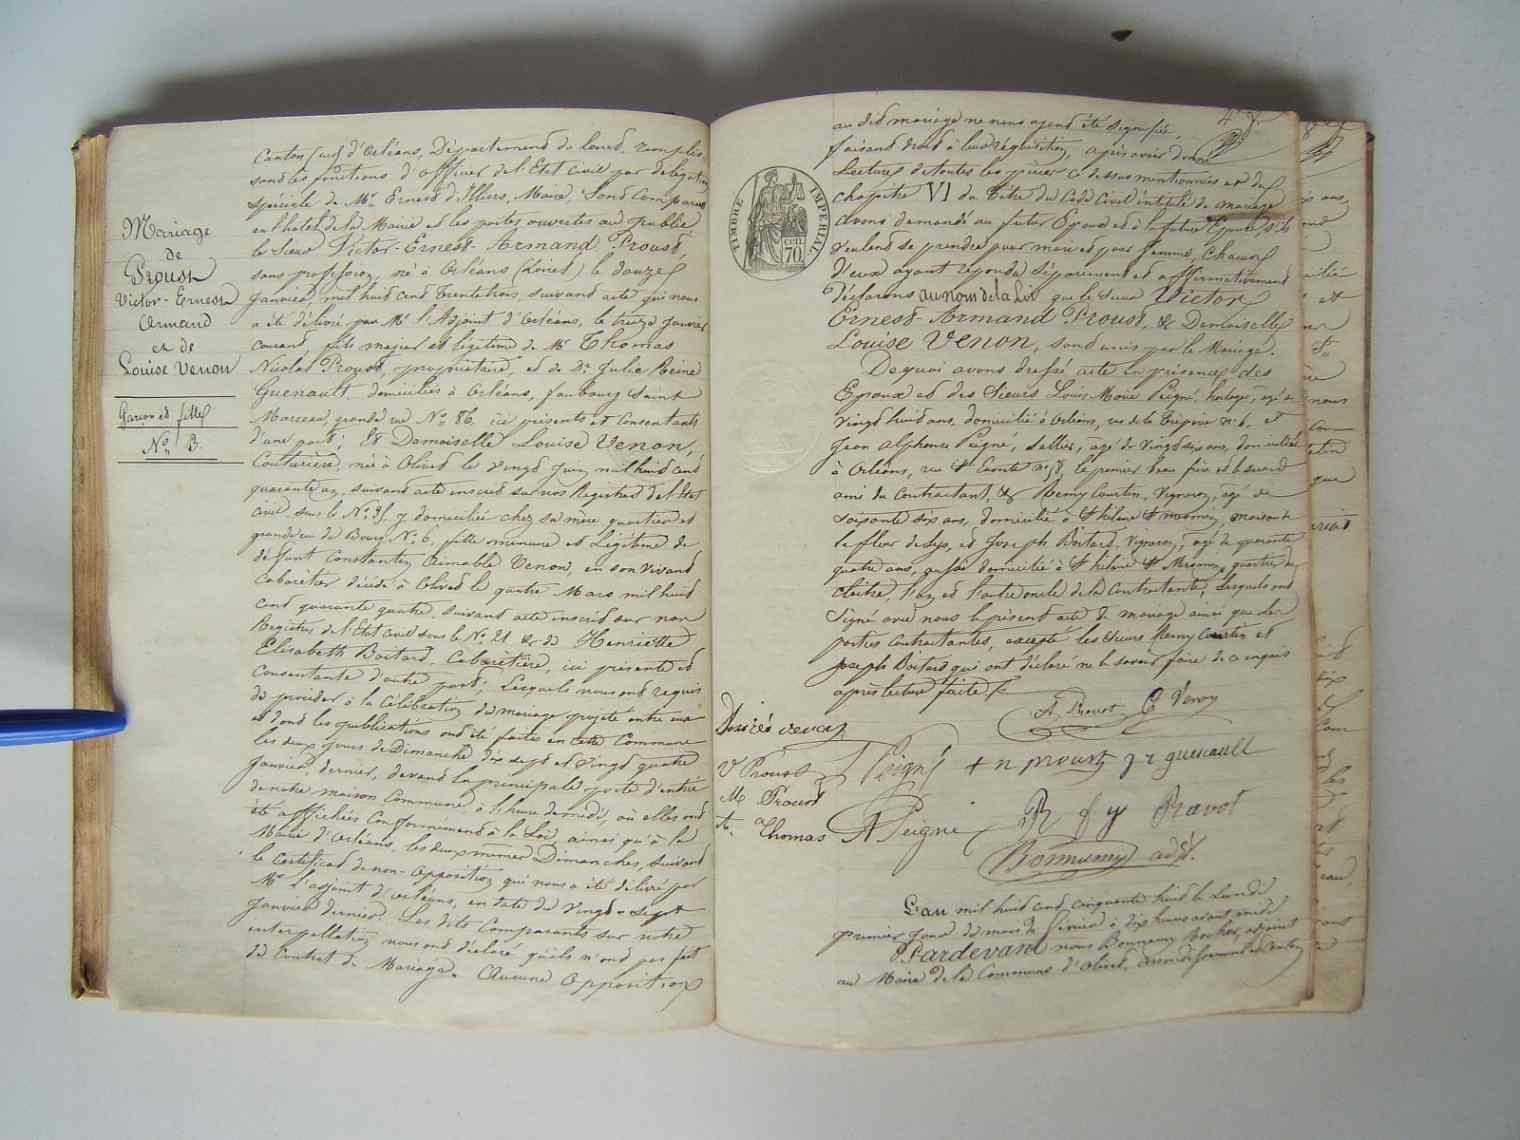 Mariage
de
Proust
Victor-Ernest
Armand
et de
Louise Venon
Garçon et fille
No 3.
Canton Sud d'Orléans, Département du Loiret, remplissant
les fonctions d'officier de l'Etat civil par délégation
spéciale de Mr Ernest d'Illiers, Maire, Sont comparus
en l'hotel de la Mairie et les portes ouvertes au public
le Sieur Victor-Ernest-Armand Proust,
sans profession, né à Orléans (Loiret) le douze
Janvier, mil huit cent trente trois, suivant acte qui nous
a été délivré par Mr l'Adjoint d'Orléans, le treize Janvier
courant, fils majeur et légitime de Mr Thomas
Nicolas Proust, propriétaire, et de De Julie Reine
Guenault, domiciliés à Orléans, faubourg Saint
Marceau, grande rue No 86, ici présents et consentants
d'une part; Et Demoiselle Louise Venon,
Couturière, née à Olivet le vingt Juin mil huit cent
quarante un, suivant acte inscrit sur nos Registres de l'Etat
civil sous le No 35, y domiciliée chez sa mère, quartier et
grande rue du Bourg No 6, fille mineure et légitime de
défunt Constantin Aimable Venon, en son vivant
Cabaretier décédé à Olivet le quatre Mars mil huit
cent quarante quatre, suivant acte inscrit sur nos
Registres de l'Etat civil sous le No 21 & de Henriette
Elisabeth Boitard, Cabaretière, ici présente et
consentante d'autre part; Lesquels nous ont requis
de procéder à la célébration du mariage projeté entre eux
et dont les publications ont été faites en cette Commune
les deux jours de Dimanche dix sept et vingt quatre
Janvier, dernier, devant la principale porte d'entrée
de notre maison Commune à l'heure de midi, où elles ont
été affichées conformément à la Loi, ainsi qu'à la
Mairie d'Orléans, les deux mêmes Dimanches, suivant
le certificat de non-opposition qui nous a été délivré par
Mr l'adjoint d'orléans, en date du Vingt-Sept
Janvier dernier. Les dits Comparants sur notre
interpellation nous ont déclaré qu'ils n'ont pas fait
de Contrat de Mariage. Aucune Opposition
TIMBRE IMPERIAL
70
au dit mariage ne nous ayant été signifiée,
faisant droit à leur réquisition, après avoir donné
Lecture de toutes les pièces ci-dessus mentionnées et du
chapitre VI du Titre du Code Civil intitulé du mariage
Avons demandé au futur Epoux et à la future Epouse, s'ils
veulent se prendre pour mari et pour femme, Chacun
d'eux ayant répondu séparément et affirmativement
Déclarons au nom de la Loi que le Sieur Victor
Ernest-Armand Proust, & Demoiselle
Louise Venon, sont unis par le Mariage.
De quoi avons dressé acte en présence des
Epoux et des Sieurs Louis Marie Peigné, horloger, agé de
vingt huit ans, domicilié à Orléans, rue de la Tréperie No 6, et
Jean alphonse Peigné, Sellier, agé de vingt six ans, domicilié
à Orléans, rue le premier beau frère et le second
ami du Contractant, & Remy Courtin, Vigneron, agé de
soixante six ans, domicilié à St hilaire St mesmin, maison de
la fleur de lys, et Joseph Boitard, Vigneron, agé de quarante
quatre ans, aussi domicilié à St hilaire St Mesmin, quartier du
cloître, l'un et l'autre oncle de la Contractante, Lesquels ont
Signé avec nous le présent acte de mariage ainsi que les
parties contractantes, excepté les sieurs Remy Courtin et
Joseph Boitard qui ont déclaré ne le savoir faire de ce enquis
après lecture faite
A Proust L Venon
V Proust Peigné t n proust j r guenault
M Proust
Thomas A Peigné Ravot
Bonnemy adjt.
L'an mil huit cent cinquante huit le Lundi
premier jour du mois de Février à dix heures avant midi
Pardevant nous Bonnemy adjoint
au Maire de la Commune d'Olivet, arrondissement et